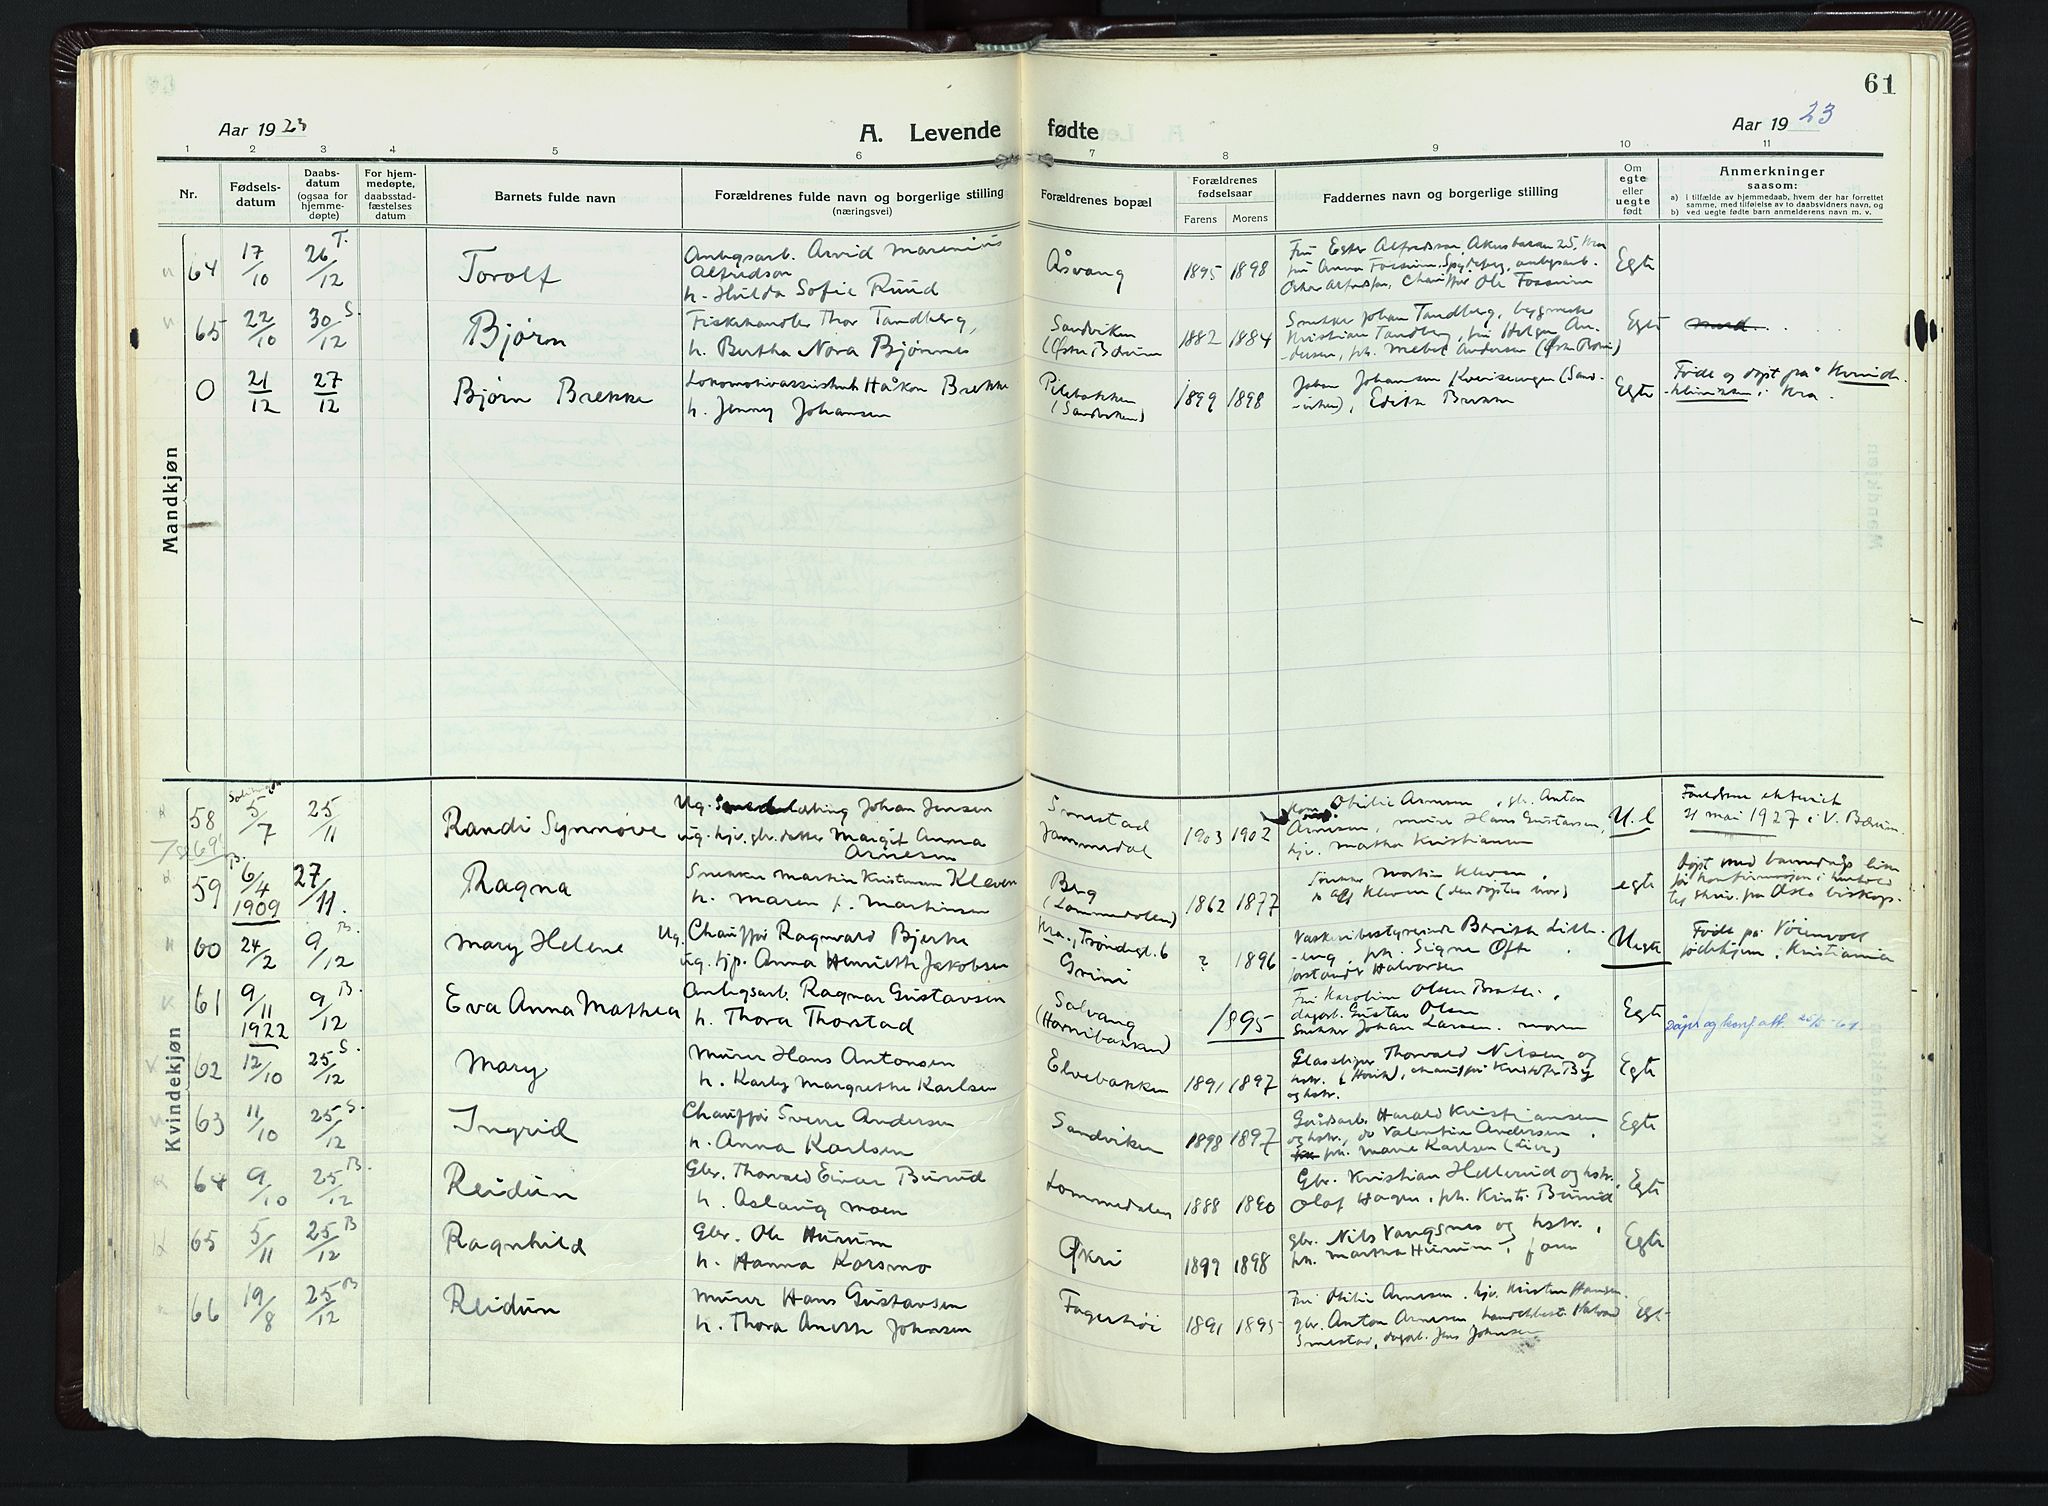 61
Aar 1923
A. Levende fødte
Aar 1923
1 2 3 4 5 6 7 8 9 10 11
Nr.
Fødsels-
datum
Daabs-
datum
(ogsaa for
hjemme-
døpte)
For hjem-
medøpte,
daabsstad-
fæstelses
datum
Barnets fulde navn
Forældrenes fulde navn og borgerlige stilling
(næringsvei)
Forældrenes bopæl
Forældrenes
fødselsaar
Farens
Morens
Faddernes navn og borgerlige stilling
Om
egte
eller
uegte
født
Anmerkninger
saasom:
a) i tilfælde av hjemmedaab, hvem der har forrettet
samme, med tilføielse av to daabsvidners navn, og
b) ved uegte fødte barn anmelderens navn m. v.
Mandkjøn
64 17/10 26/12 T. Torolf
Anlegsarb. Arvid Marenius
Alfredson
h. Hulda Sofie Ruud
Åsvang 1895 1898
Fru Ester Alfredson Akersbakken 25, Kra
fru Anna Fossum, Spydeberg, anlegsarb.
Oskar Alfredson, Chauffør Ole Fossum
Egte
65 22/10 30/12 S. Bjørn
Fiskehandler Thor Tandberg,
h. Bertha Nora Bjønnes
Sandviken
(Østre Bærum
1882 1884
Snekker Johan Tandberg, bygmester
Kristian Tandberg, fru Helga An-
dersen, frk. Mebel Andersen
Egte
0 21/12 27/12 Bjørn Brekke
Lokomotivassistent Håkon Brekke
h. Jenny Johansen
Pilebakken
(Sandviken)
1899 1898
Johan Johansen (Sand-
viken), Edith Brekke
Egte
Føde og døpt på Kvinde-
klinikken i Kra.
Kvindekjøn
58 5/7 25/11 Randi Synnøve
Ug. Johan Jensen
ug. hjv. gbr. datter Margit Anna
Arnesen
Smestad
1903 1902
Othilie Arnesen, gbr. Anton
Arnesen, murer Hans Gustavsen,
hjv. Martha Kristiansen
U.e
Foreldrene ekteviet
mai 1927 i V. Bærum.
59 6/4 1909 27/11. Ragna
Snekker Martin Kristiansen Kleven
h. Maren f. Martinsen
Berg
(Lommedalen)
1862 1877
Snekker Martin Kleven,
Kleven (den døptes mor)
egte
Døpt med barnedåps
før konfirmasjon i henhold
til skriv. fra Oslo biskop.
60 24/2 9/12 B. Mary Helene
Ug. Chauffør Ragnvald Bjerke
ug. tjp. Anna Henriette Jakobsen
Kra., Trondegt. 6
Grini
? 1896
Vaskeribestyrerinde
frk. Signe
forstander Halvorsen
Uegte
Føde på
fødehjem, Kristiania
61 9/11 1922 9/12 B. Eva Anna Mathea
Anlegsarb. Ragnar Gustavsen
h. Thora Thorstad
Solvang
1895
Fru Karoline Olsen Bratli,
dagarb. Gustav Olsen
Snekker Johan Larsen. moren
Egte
Dåps og konf. att. 25/5-64
62 12/10 25/12 S. Mary
Murer Hans Antonsen
h. Karby Margrethe Karlsen
Elvebakken 1891 1897
Thorvald Nilsen og
hstr. chauffør Kristofer By
og hstr.
Egte
63 11/10 25/12 S. Ingrid
Chauffør Sverre Andersen
h. Anna Karlsen
Sandviken 1898 1897
Gårdsarb. Harald Kristiansen
og hstr., do Valentin Andersen,
frk. Marie Karlsen
Egte
64 9/10 25/12 B. Reidun
Gbr. Thorvald Einar Burud
h. Aslaug Moen
Lommedalen 1888 1890
Gbr. Kristian Hellerud og hstr.
Olaf Hagen, frk. Kristi Burud
Egte
65 5/11 25/12 B Ragnhild
Gbr. Ole Hurum
h. Hanna Korsmo
Økri 1899 1898
gbr. Nils Vangsnes og hstr.,
frk. Martha Hurum, faren
Egte
66 19/8 25/12 B Reidun
Murer Hans Gustavsen
h. Thora Anette Johnsen
Fagerhøi 1891 1895
Fru Othilie Arnesen, hjv. Kirsten Hansen,
gbr. Anton Arnesen, handelsbest. Halvard
Smestad, dagarb. Jens Johnsen
Egte